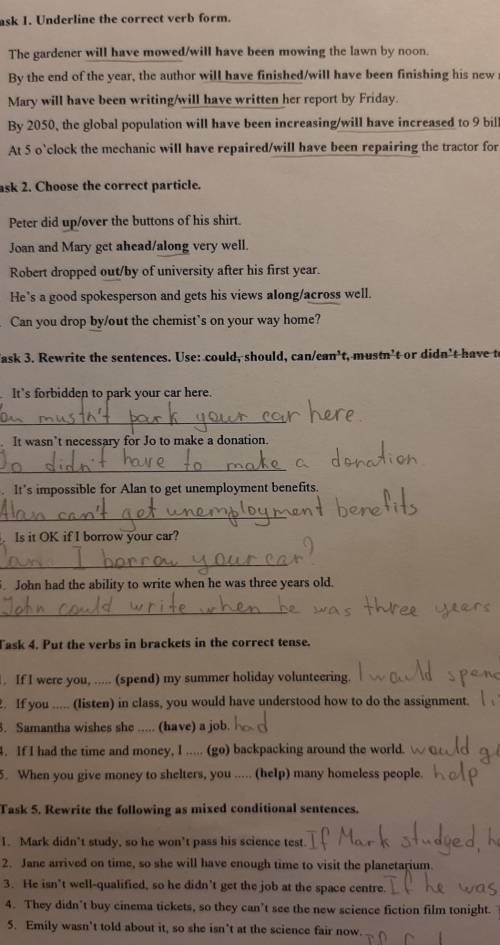 ask 1. Underline the correct verb form.
The gardener will have mowed/will have been mowing the lawn by noon.
By the end of the year, the author will have finished/will have been finishing his new
Mary will have been writing/will have written her report by Friday.
By 2050, the global population will have been increasing/will have increased to 9 bill
At 5 o'clock the mechanic will have repaired/will have been repairing the tractor for
ask 2. Choose the correct particle.
Peter did up/over the buttons of his shirt.
Joan and Mary get ahead/along very well.
Robert dropped out/by of university after his first year.
He's a good spokesperson and gets his views along/across well.
Can you drop by/out the chemist's on your way home?
ask 3. Rewrite the sentences. Use: could, should, can/can't, mustn't or didn't have t
It's forbidden to park your car here.
ou mustn't park your car here.
It wasn't necessary for Jo to make a donation.
Jo didn't have to make a donation
It's impossible for Alan to get unemployment benefits.
Alan can't get unemployment benefits
Is it OK if I borrow your car?
Can I borrow your car?
5. John had the ability to write when he was three years old.
John could write when he was three years
Task 4. Put the verbs in brackets in the correct tense.
1. If I were you, ..... (spend) my summer holiday volunteering. I would spend
2. If you ..... (listen) in class, you would have understood how to do the assignment. li
3. Samantha wishes she ..... (have) a job. had
4. If I had the time and money, I ..... (go) backpacking around the world. would g
5. When you give money to shelters, you ..... (help) many homeless people. help
Task 5. Rewrite the following as mixed conditional sentences.
1. Mark didn't study, so he won't pass his science test. If Mark studged, h
2. Jane arrived on time, so she will have enough time to visit the planetarium.
3. He isn't well-qualified, so he didn't get the job at the space centre. If he was
4. They didn't buy cinema tickets, so they can't see the new science fiction film tonight.
5. Emily wasn't told about it, so she isn't at the science fair now. If